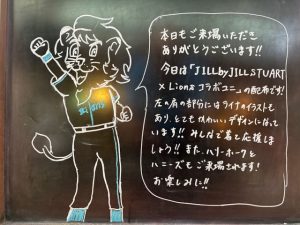 Lions
本日もご来場いただき
ありがとうございます!!
今日は「JILL by JILLSTUART
× Lions コラボユニ」の配布です!
左の肩の部分にはライナのイラストも
あり、とてもかわいいデザインになって
います!! みんなで着て応援しま
しょう!! また、ハリーホークと
ハニーズもご来場されます!
お楽しみに!!